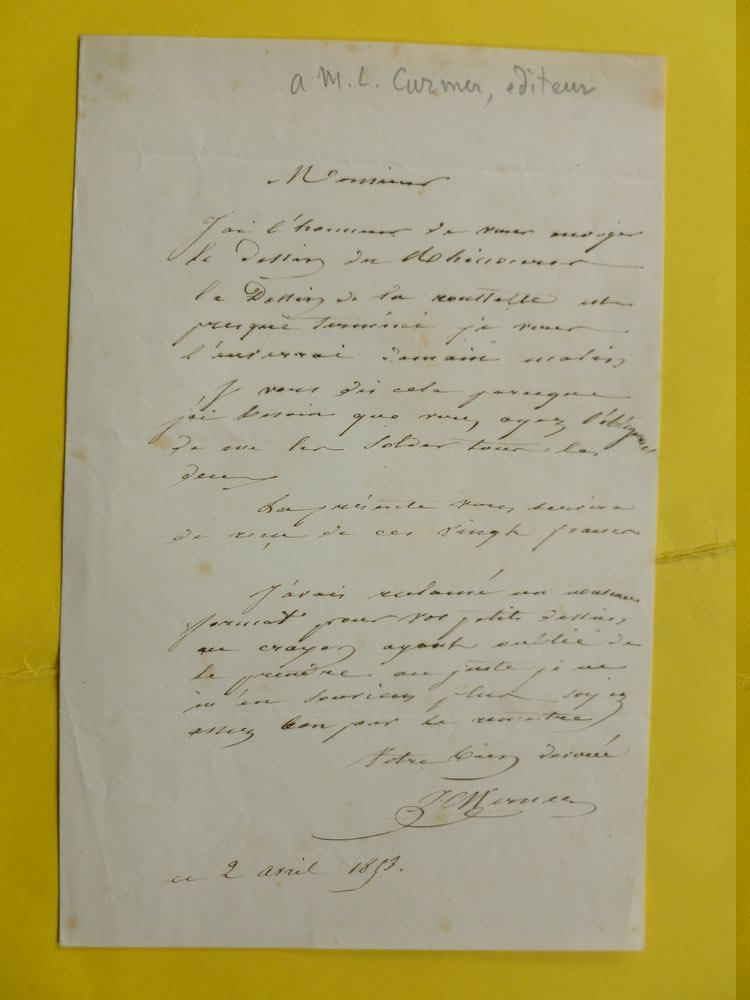 a M. L. Curmer, editeur
Monsieur
J'ai l'honneur de vous envoyer
le Dessin du Rhinoceros
le Dessin de la roussette est
presque terminée je vous
l'enverrai demain matin
Je vous dis cela parceque
j'ai besoin que vous ayez l'obligeance
de me les solder tous les
deux
La présente vous servira
de reçu de ces vingt francs
J'avais reclamé un nouveau
format pour vos petits dessins
au crayon ayant oublié de
le prendre au juste je ne
m'en souviens plus soyez
assez bon pour le remettre
Votre bien devoué
ce 2 avril 1853.